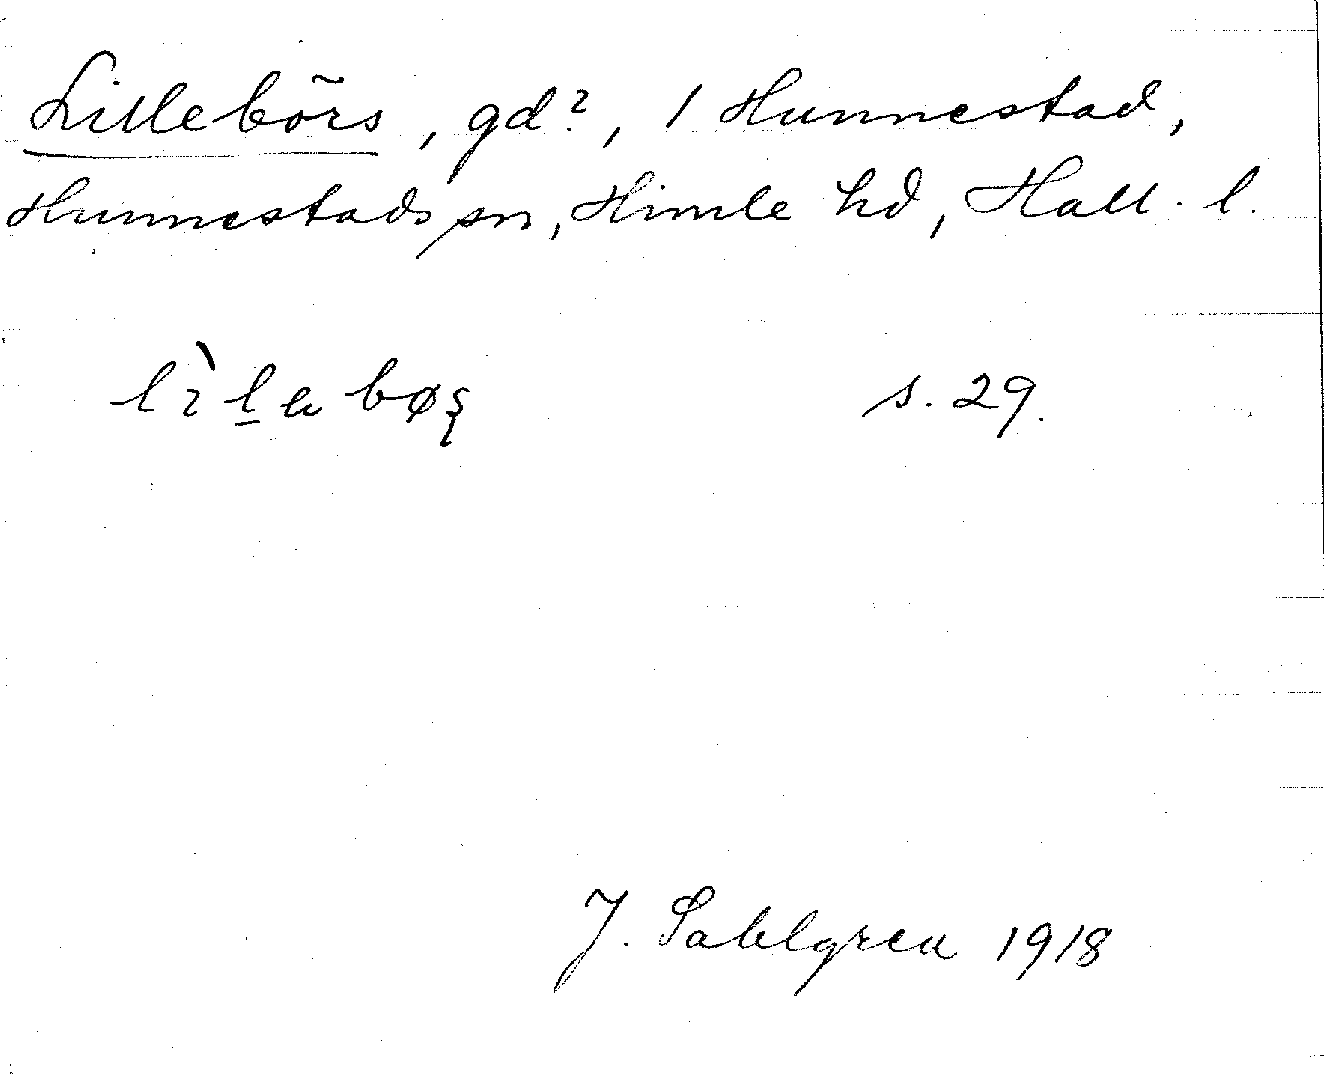 Lillebörs, gd?, 1 Hunnestad,
Hunnestads sn, Himle hd, Hall. l.
lìlabøʂ s. 29.
J. Sahlgren 1918